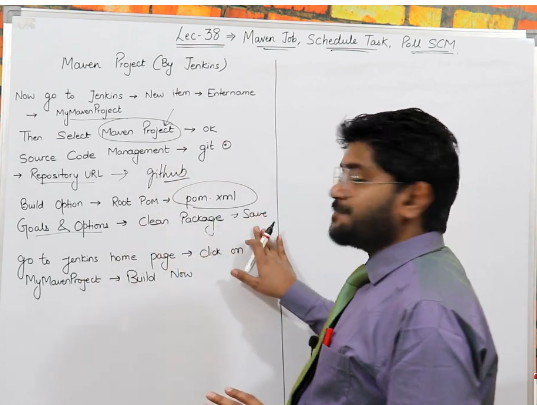 Lec-38 → Maven Job, Schedule Task, Poll SCM
Maven Project (By Jenkins)
Now go to Jenkins → New item → Entername
→ MyMavenProject
Then Select Maven Project → ok
Source Code Management → git ⊙
→ Repository URL → github
Build Option → Root Pom → pom.xml
Goals & Options → Clean Package → Save
go to Jenkins home page → Click on
MyMavenProject → Build Now